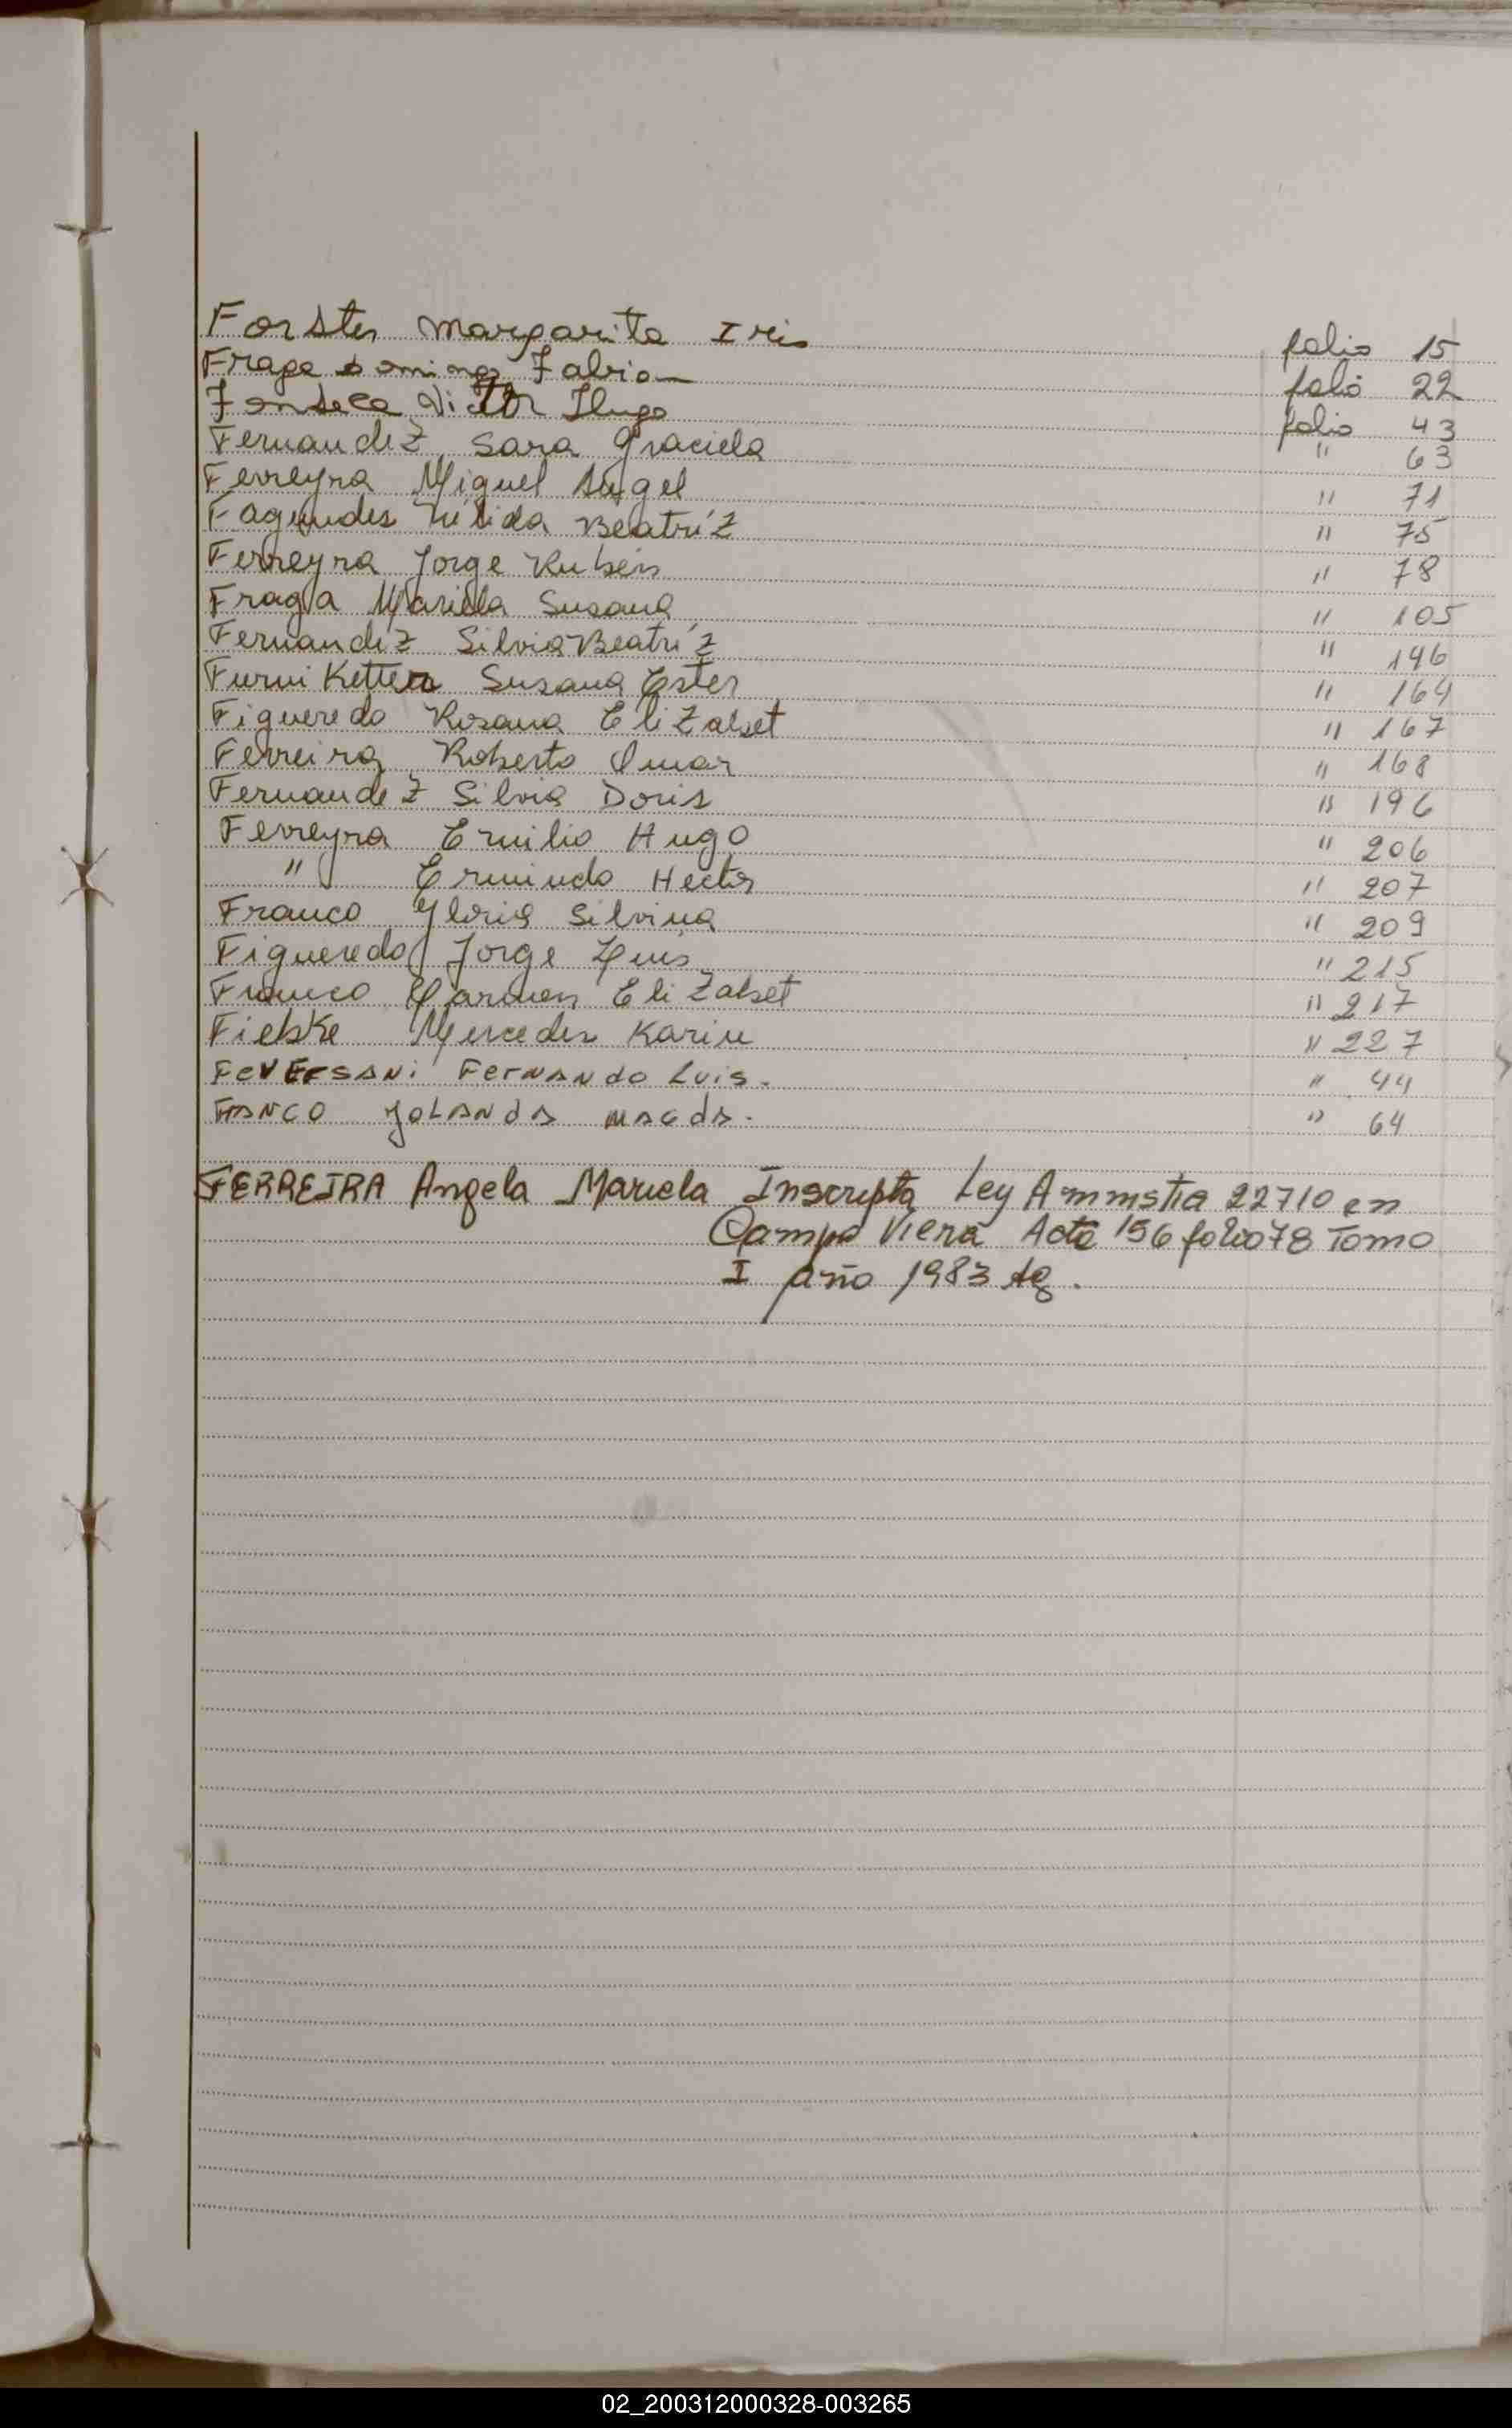 Forster Margarita Iris folio 15
Fraga Domingo Fabian folio 22
Fonseca Victor Hugo folio 43
Fernandez Sara Graciela " 63
Ferreyra Miguel Angel " 71
Fagundes Nélida Beatríz " 75
Ferreyra Jorge Rubén " 78
Fraga Mariela Susana " 105
Fernandéz Silvia Beatríz " 146
Furni Ketter Susana Ester " 164
Figueredo Rosana Elizabet " 167
Ferreira Roberto Omar " 168
Fernandez Silvia Doris " 196
Ferreyra Emilio Hugo " 206
" Ermindo Hector " 207
Franco Gloria Silvina " 209
Figueredo Jorge Luis " 215
Franco Carmen Elizabet " 217
Fiebke Mercedes Karin " 227
Feversani Fernando Luis. " 44
Franco Yolanda Magda. " 64
FERREIRA Angela Mariela Inscripta Ley Amnistia 22710 en
Campo Viera Acta 156 folio 78 Tomo
I año 1983
02_200312000328-003265